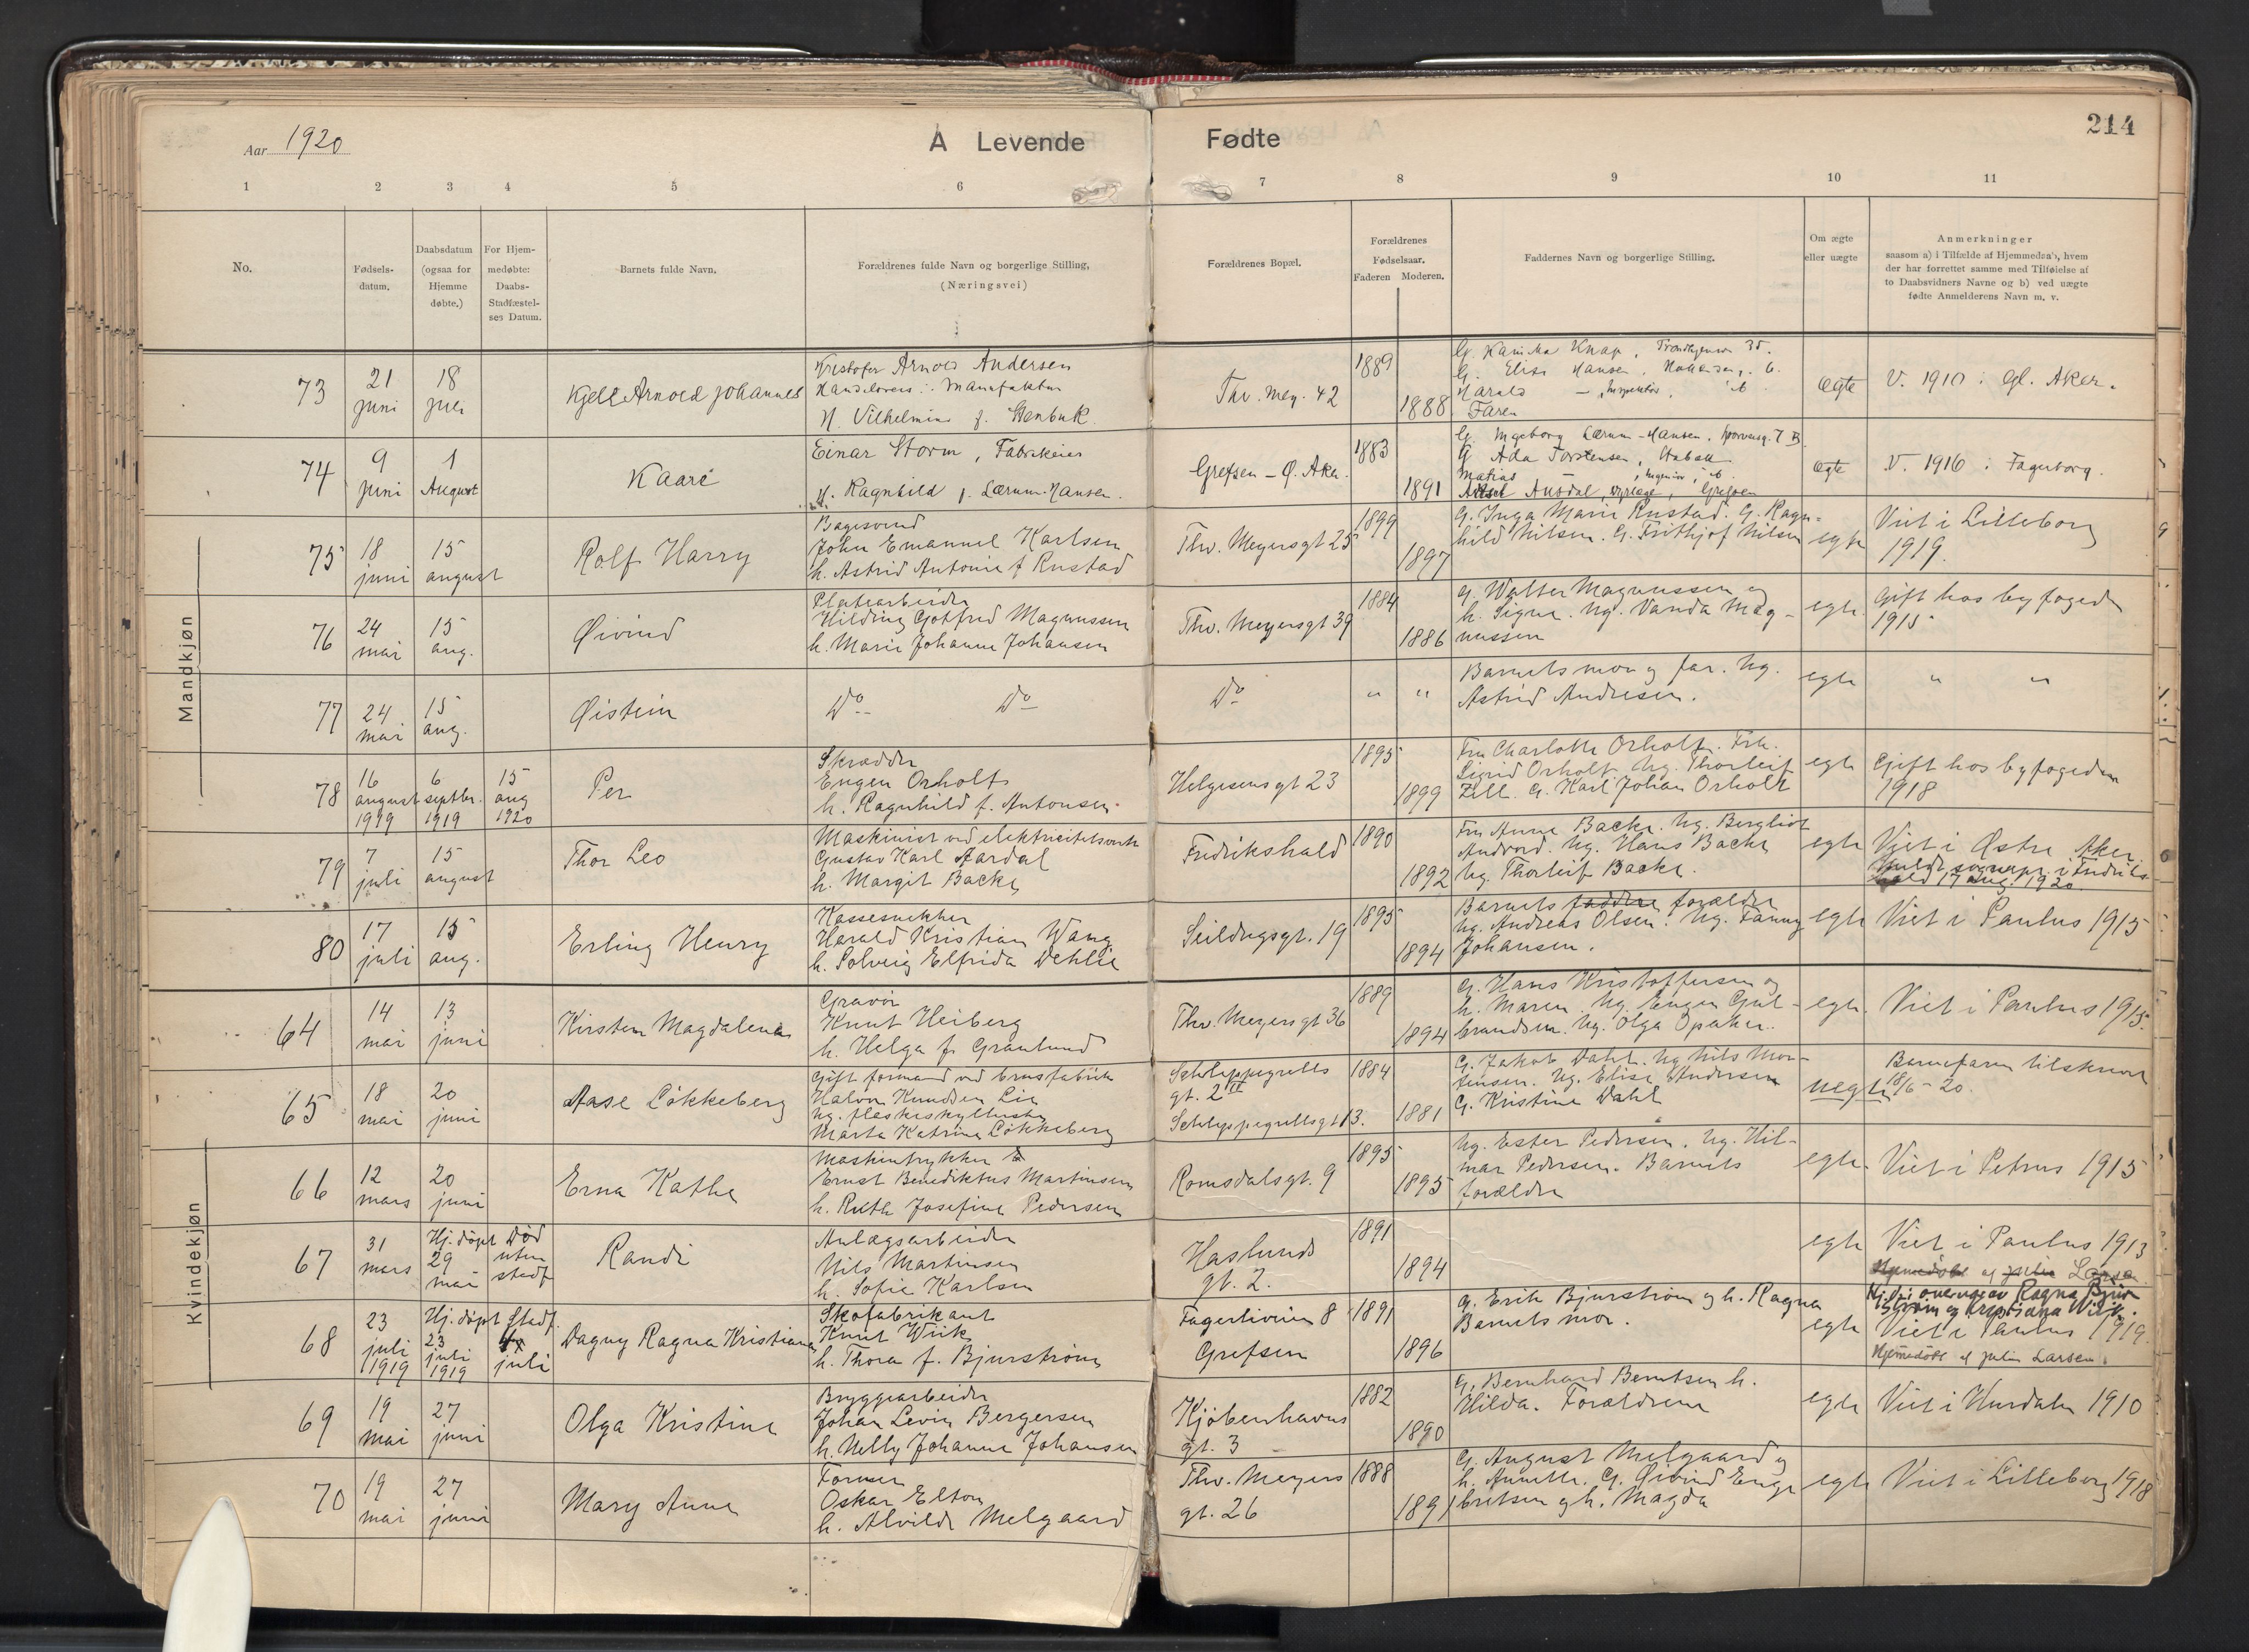 Aar 1920
A Levende Fødte
214
1 2 3 4 5 6 7 8 9 10 11
No.
Fødsels-
datum.
Daabsdatum
(ogsaa for
Hjemme
døbte.)
For Hjem-
medøbte:
Daabs-
Stadfæstel-
ses Datum.
Barnets fulde Navn.
Forældrenes fulde Navn og borgerlige Stilling,
(Næringsvei)
Forældrenes Bopæl.
Forældrenes
Fødselsaar.
Faderen Moderen.
Faddernes Navn og borgerlige Stilling.
Om ægte
eller uægte
Anmerkninger
saasom a) i Tilfælde af Hjemmedaab, hvem
der har forrettet samme med Tilføielse af
to Daabsvidners Navne og b) ved uægte
fødte Anmelderens Navn m. v.
Mandkjøn
73
21
juni
18
juli
Kjell Arnold Johannes
Kristofer Arnold Andersen
Manufaktur
H. Vilhelmine f. Stenbuk
Thv. Mey. 42
1889
1888
G. Kamilla Knap, Trondhjemsv. 35.
G. Elise Hansen,
Harald — Inspektør,
Faren
ægte
V. 1910 i Gl. Aker.
74
9
juni
1
August
Kaare
Einar Storm, Fabrikeier
H. Ragnhild f. Lærum-Hansen.
Grefsen - Ø. Aker.
1883
1891
G. Ingeborg Lærum-Hansen,
G. Ada Torstensen, Stabæk
Matias — , Ingeniør,
Aksel Ausdal, Dyrlæge, Grefsen
ægte
V. 1916 i Fagerborg.
75
18
juni
15
august
Rolf Harry
Bagersvend
John Emanuel Karlsen
h. Astrid Antonie f Rustad
Thv. Meyersgt 25
1899
1897
G. Inga Marie Rustad. G. Ragn-
hild Nilsen. G. Frithjof Nilsen
egte
Viet i Lilleborg
1919.
76
24
mai
15
aug.
Øivind
Platearbeider
Hilding Gotfred Magnussen
h. Marie Johanne Johansen
Thv. Meyersgt 39
1884
1886
G. Walter Magnussen og
h. Signe. Ug. Vanda Mag-
nussen
egte
Gift hos byfogden
1915
77
24
mai
15
aug.
Øistein
Do Do
Do
" "
Barnets mor og far. Ug.
Astrid Andresen.
egte
" "
78
16
august
1919
6
septbr.
1919
15
aug
1920
Per
Skrædder
Eugen Orholt
h. Ragnhild f. Antonsen.
Helgesensgt 23
1895
1899
Fru Charlotte Orholt. Frk.
Sigrid Orholt. Ug. Thorleif
Zell. G. Karl Johan Orholt
egte
Gift hos byfogden
1918
79
7
juli
15
august
Thor Leo
Maskinist ved elektricitetsverk
Gustav Karl Aardal
h. Margit Backe
Fredrikshald
1890
1892
Fru Anna Backe. Ug. Bergliot
Andvord. Ug. Hans Backe
Ug. Thorleif Backe.
egte
Viet i Østre Aker.
Meldt sognepr. i Fredriks
hald 17 aug. 1920
80
17
juli
15
aug.
Erling Henry
Kassesnekker
Harald Kristian Wang
h. Solveig Elfrida Dehlie
Seildugsgt. 19
1895
1894
Barnets faddere forældre
Ug. Andreas Olsen. Ug. Fanny
Johansen.
egte
Viet i Paulus 1915
Kvindekjøn
64
14
mai
13
juni
Kirsten Magdalena
Gravør
Knut Heiberg
h. Helga f. Granlund
Thv. Meyersgt 36
1889
1894
G. Hans Kristoffersen og
h. Maren. Ug. Eugen Gul-
brandsen. Ug. Olga Opaker.
egte.
Viet i Paulus 1915.
65
18
mai
20
juni
Aase Løkkeberg
Gift formand ved brusfabrik
Halvor Knudsen Lie
ug. flaskeskyllerske
Marta Katrine Løkkeberg
Schleppegrells
gt. 2 II
Schleppegrellsgt 13.
1884
1881
G. Jakob Dahl. Ug Nils Mor-
tensen. Ug. Elise Andersen
G. Kristine Dahl
uegte
Barnefaren tilskrevet
18/6-20.
66
12
mars
20
juni
Erna Kathe
Maskintrykker
Ernst Benediktus Martinsen
h. Ruth Josefine Pedersen
Romsdalsgt. 9
1895
1895
Ug. Ester Pedersen. Ug. Hil-
mar Pedersen. Barnets
forældre
egte.
Viet i Petrus 1915
67
31
mars
Hj. døpt
29
mai
Død
uten
stadf
Randi
Anlægsarbeider
Nils Martinsen
h. Sofie Karlsen
Haslunds
gt. 2.
1891
1894
egte
Viet i Paulus 1913
Hjemedøbt af Julie Larsen.
68
23
juli
1919
Hj. døpt
23
juli
1919
Stadf.
4
juli
Dagny Ragna Kristiane
Skofabrikant
Knut Wiik
h. Thora f. Bjurstrøm
Fagerliveien 8
Grefsen
1891
1896
G. Erik Bjurstrøm og h. Ragna
Barnets mor.
egte
Hj.d. i overvær av Ragna Bjur
strøm og Kristiana Wiik.
Viet i Paulus 1919.
Hjemedøbt af Julie Larsen.
69
19
mai
27
juni
Olga Kristine
Bryggearbeider
Johan Levin Bergersen
h. Nelly Johanne Johansen
Kjøbenhavns
gt. 3
1882
1890
G. Bernhard Berntsen h.
Hilda. Forældrene
egte
Viet i Hurdalen 1910
70
19
mai
27
juni
Mary Anne
Former
Oskar Elton
h. Alvilde Melgaard
Thv. Meyers
gt. 26
1888
1891
G. August Melgaard og
h. Annette. G. Øivind Enge
bretsen og h. Magda
egte
Viet i Lilleborg 1918